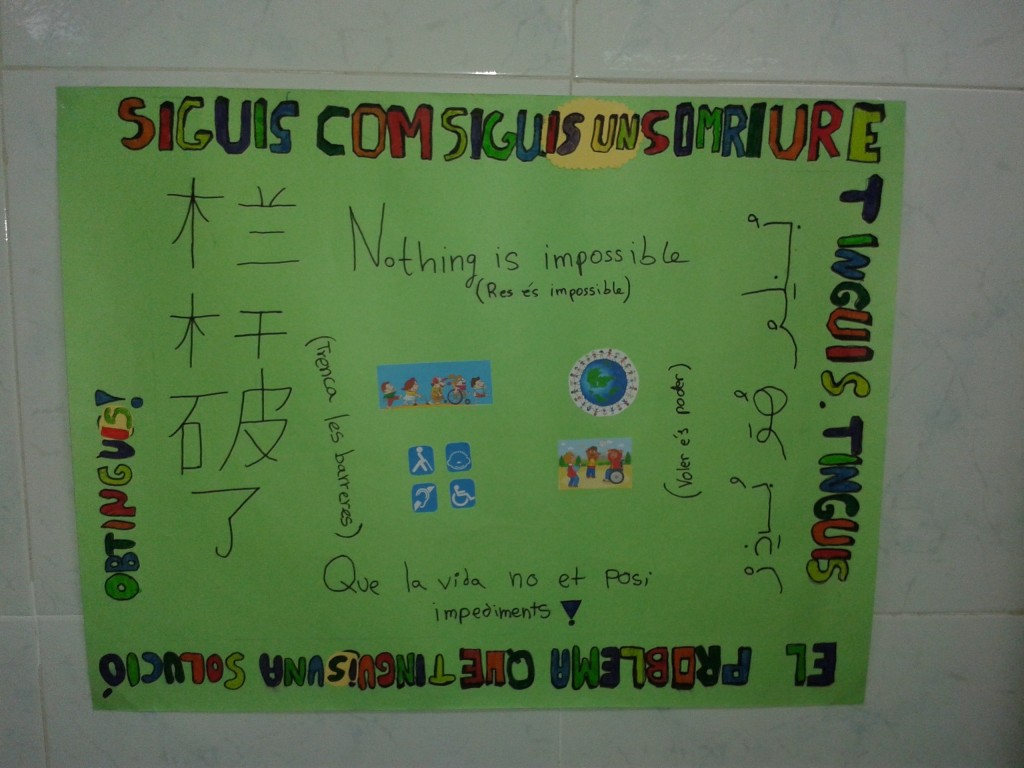 SIGUIS COM SIGUIS UN SOMRIURE
TINGUIS. TINGUIS
EL PROBLEMA QUE TINGUIS UNA SOLUCIÓ
OBTINGUIS!
栏杆破了
(Trenca les barreres)
Nothing is impossible
(Res és impossible)
(Voler és poder)
Que la vida no et posi
impediments!